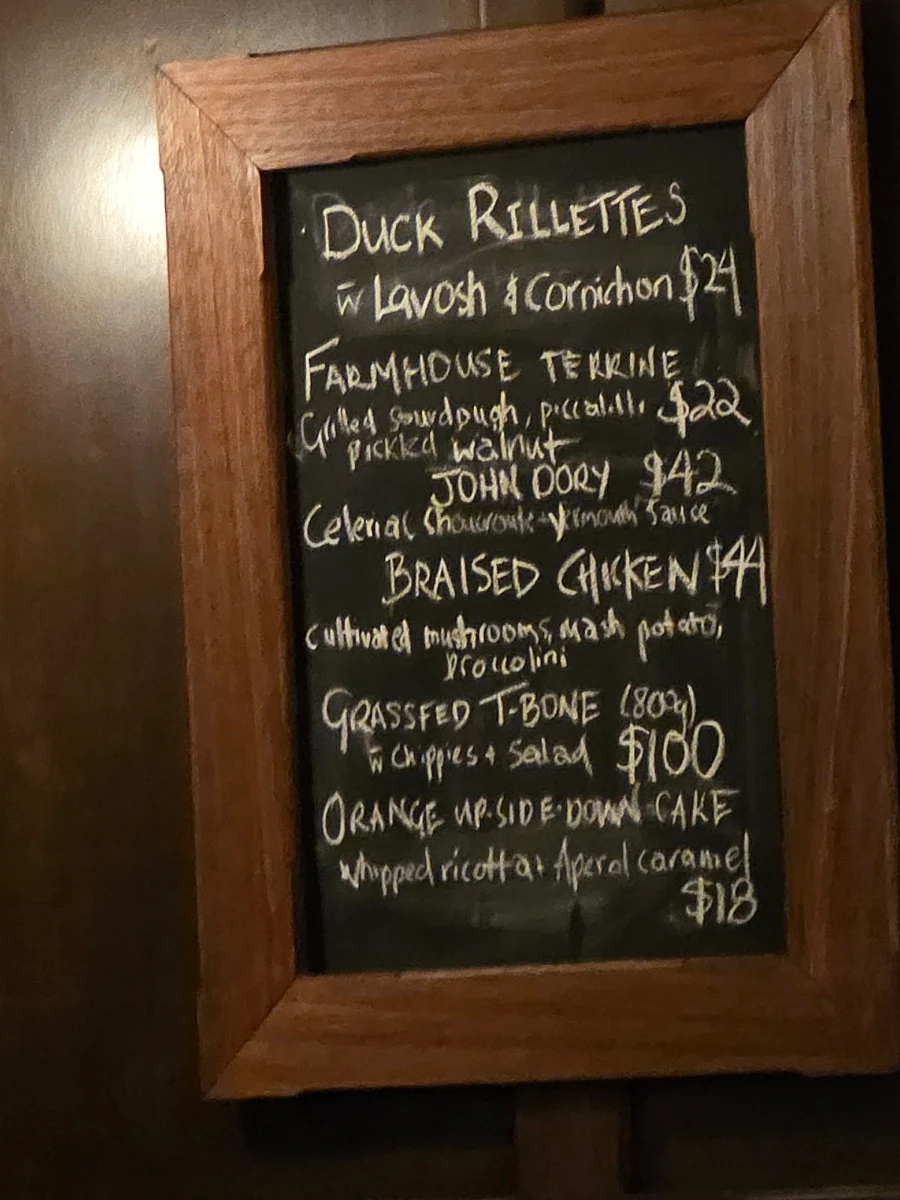 DUCK RILLETTES
w̄ Lavosh & Cornichon $24
FARMHOUSE TERRINE
Grilled sourdough, piccalilli $22
pickled walnut
JOHN DORY $42
Celeriac Choucroute + Vermouth Sauce
BRAISED CHICKEN $44
cultivated mushrooms, mash potato,
broccolini
GRASSFED T-BONE (800g)
w̄ chippies + salad $100
ORANGE UP-SIDE-DOWN CAKE
whipped ricotta + Aperol caramel
$18